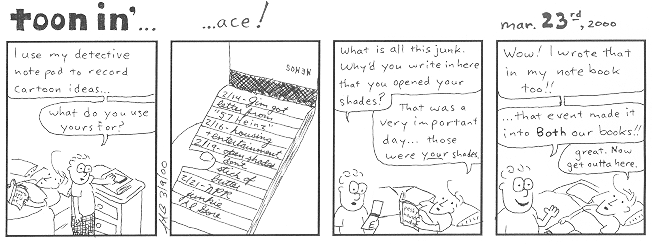 toon in'...
...ace!
mar. 23rd, 2000
I use my detective
note pad to record
Cartoon ideas...
What do you use
yours for?
MEMOS
2/14-
got
letter from
'57 Heinz
2/16- housing
+ entertainment
2/19- open shades
don't
deck of
2/21- NPR
AB 3/9/00
What is all this junk.
Why'd you write in here
that you opened your
shades?
That was a
very important
day... those
were your shades.
Wow! I wrote that
in my note book
too!!
...that event made it
into Both our books!!
great. Now
get outta here.